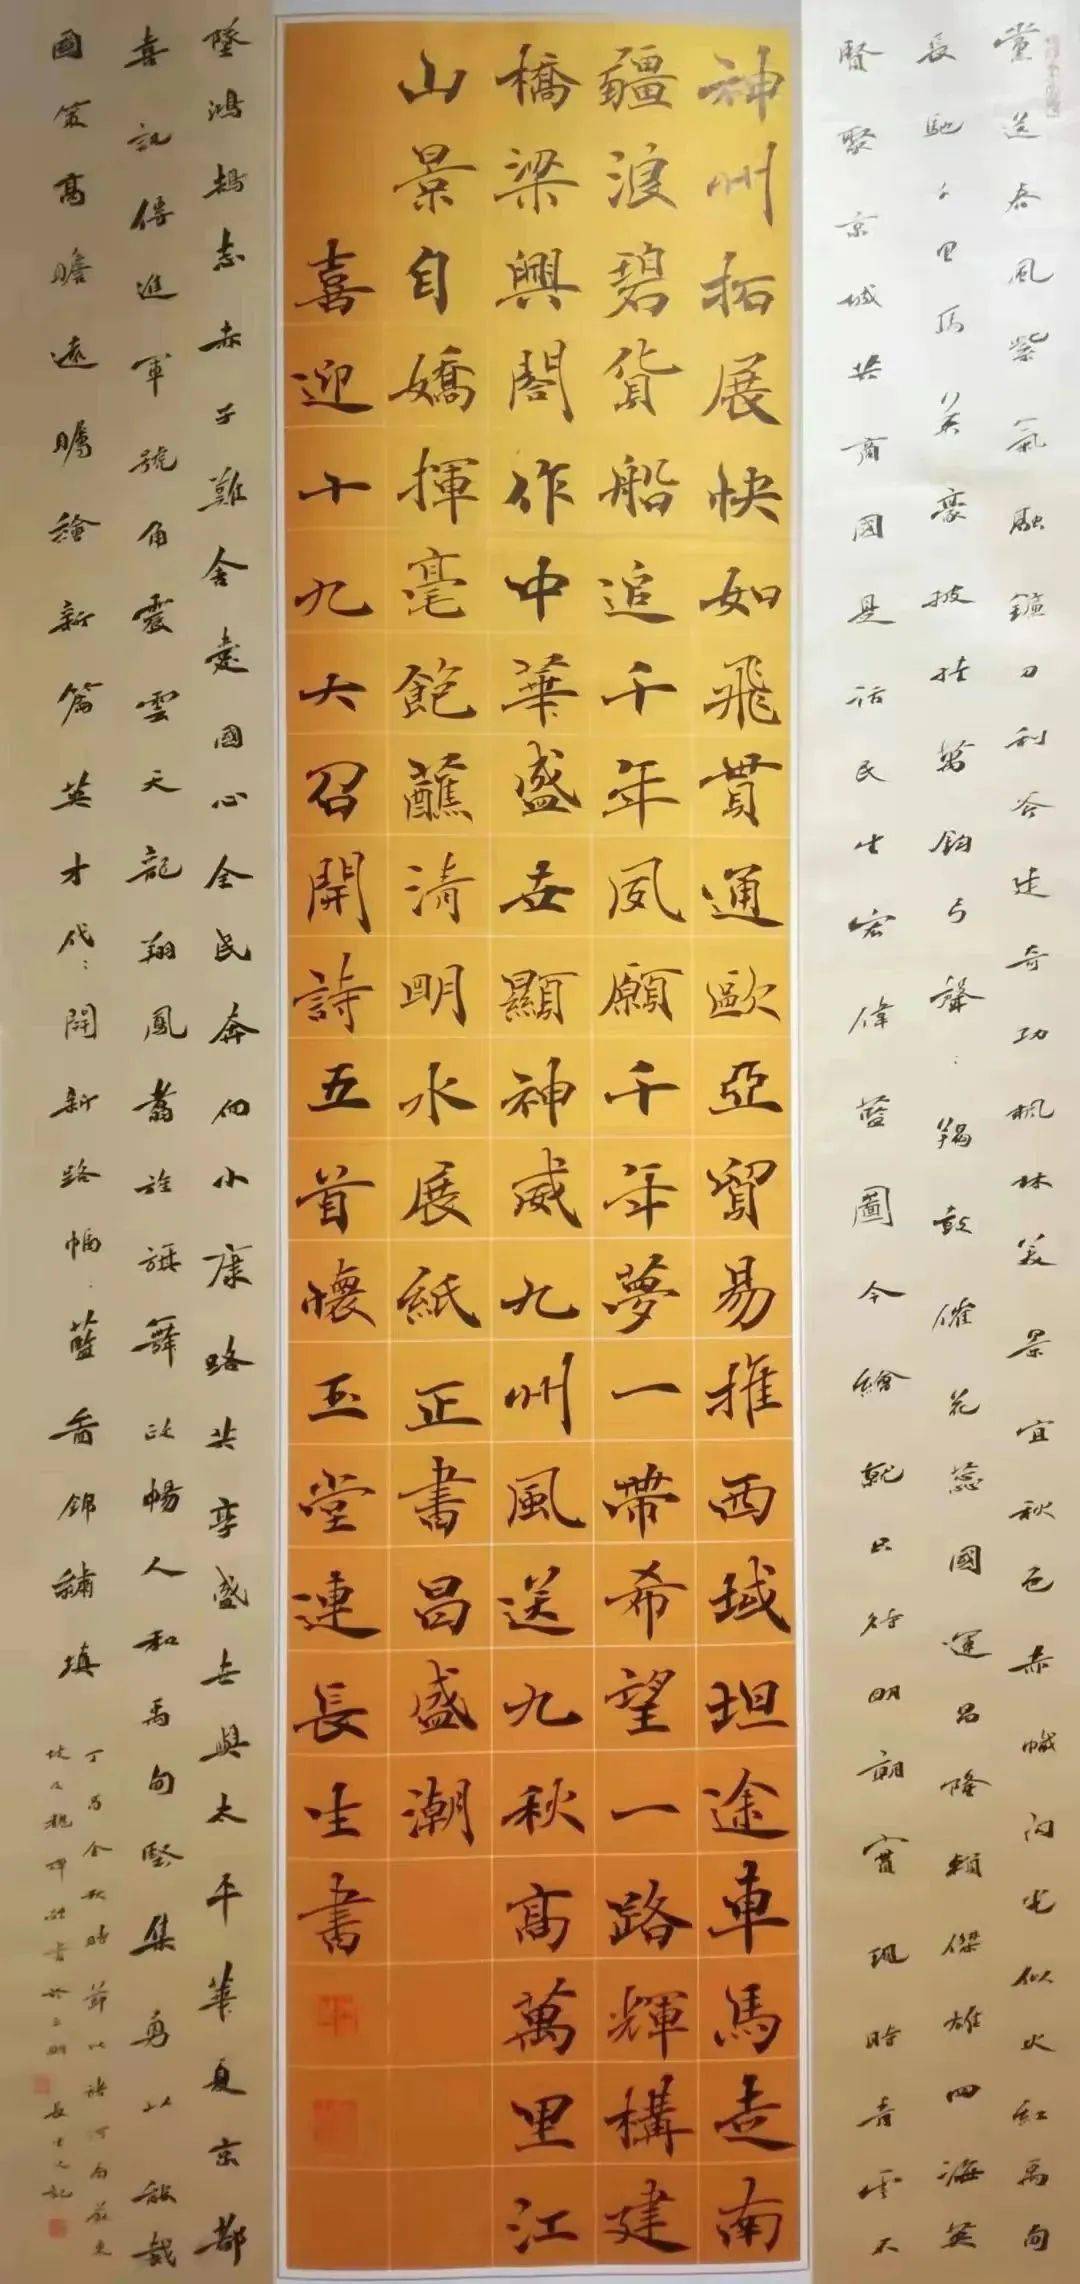 黨送春風紫氣融鐮刀利斧建奇功楓林美景宜秋色赤幟閃光似火紅禹甸
長馳千里馬英豪披掛萬鈞弓聲聲羯鼓催花蕊國運昌隆賴傑雄四海英
賢聚京城共商國是話民生宏偉藍圖今繪就只待明朝實現時青雲不
神州拓展快如飛貫通歐亞貿易推西域坦途車馬走南
疆浪碧貨船追千年夙願千年夢一帶希望一路輝構建
橋梁興閣作中華盛世顯神威九州風送九秋高萬里江
山景自嬌揮毫飽蘸清明水展紙正書昌盛潮
喜迎十九大召開詩五首懷玉堂連長生書
墜鴻鵠志赤子難舍愛國心全民奔向小康路共享盛世與太平華夏京都
喜訊傳進軍號角震雲天龍翔鳳翥旌旗舞政暢人和禹甸堅集
國策高瞻遠矚繪新篇英才代代開新路幅幅藍圖錦繡填
丁酉金秋時節以
長生又記